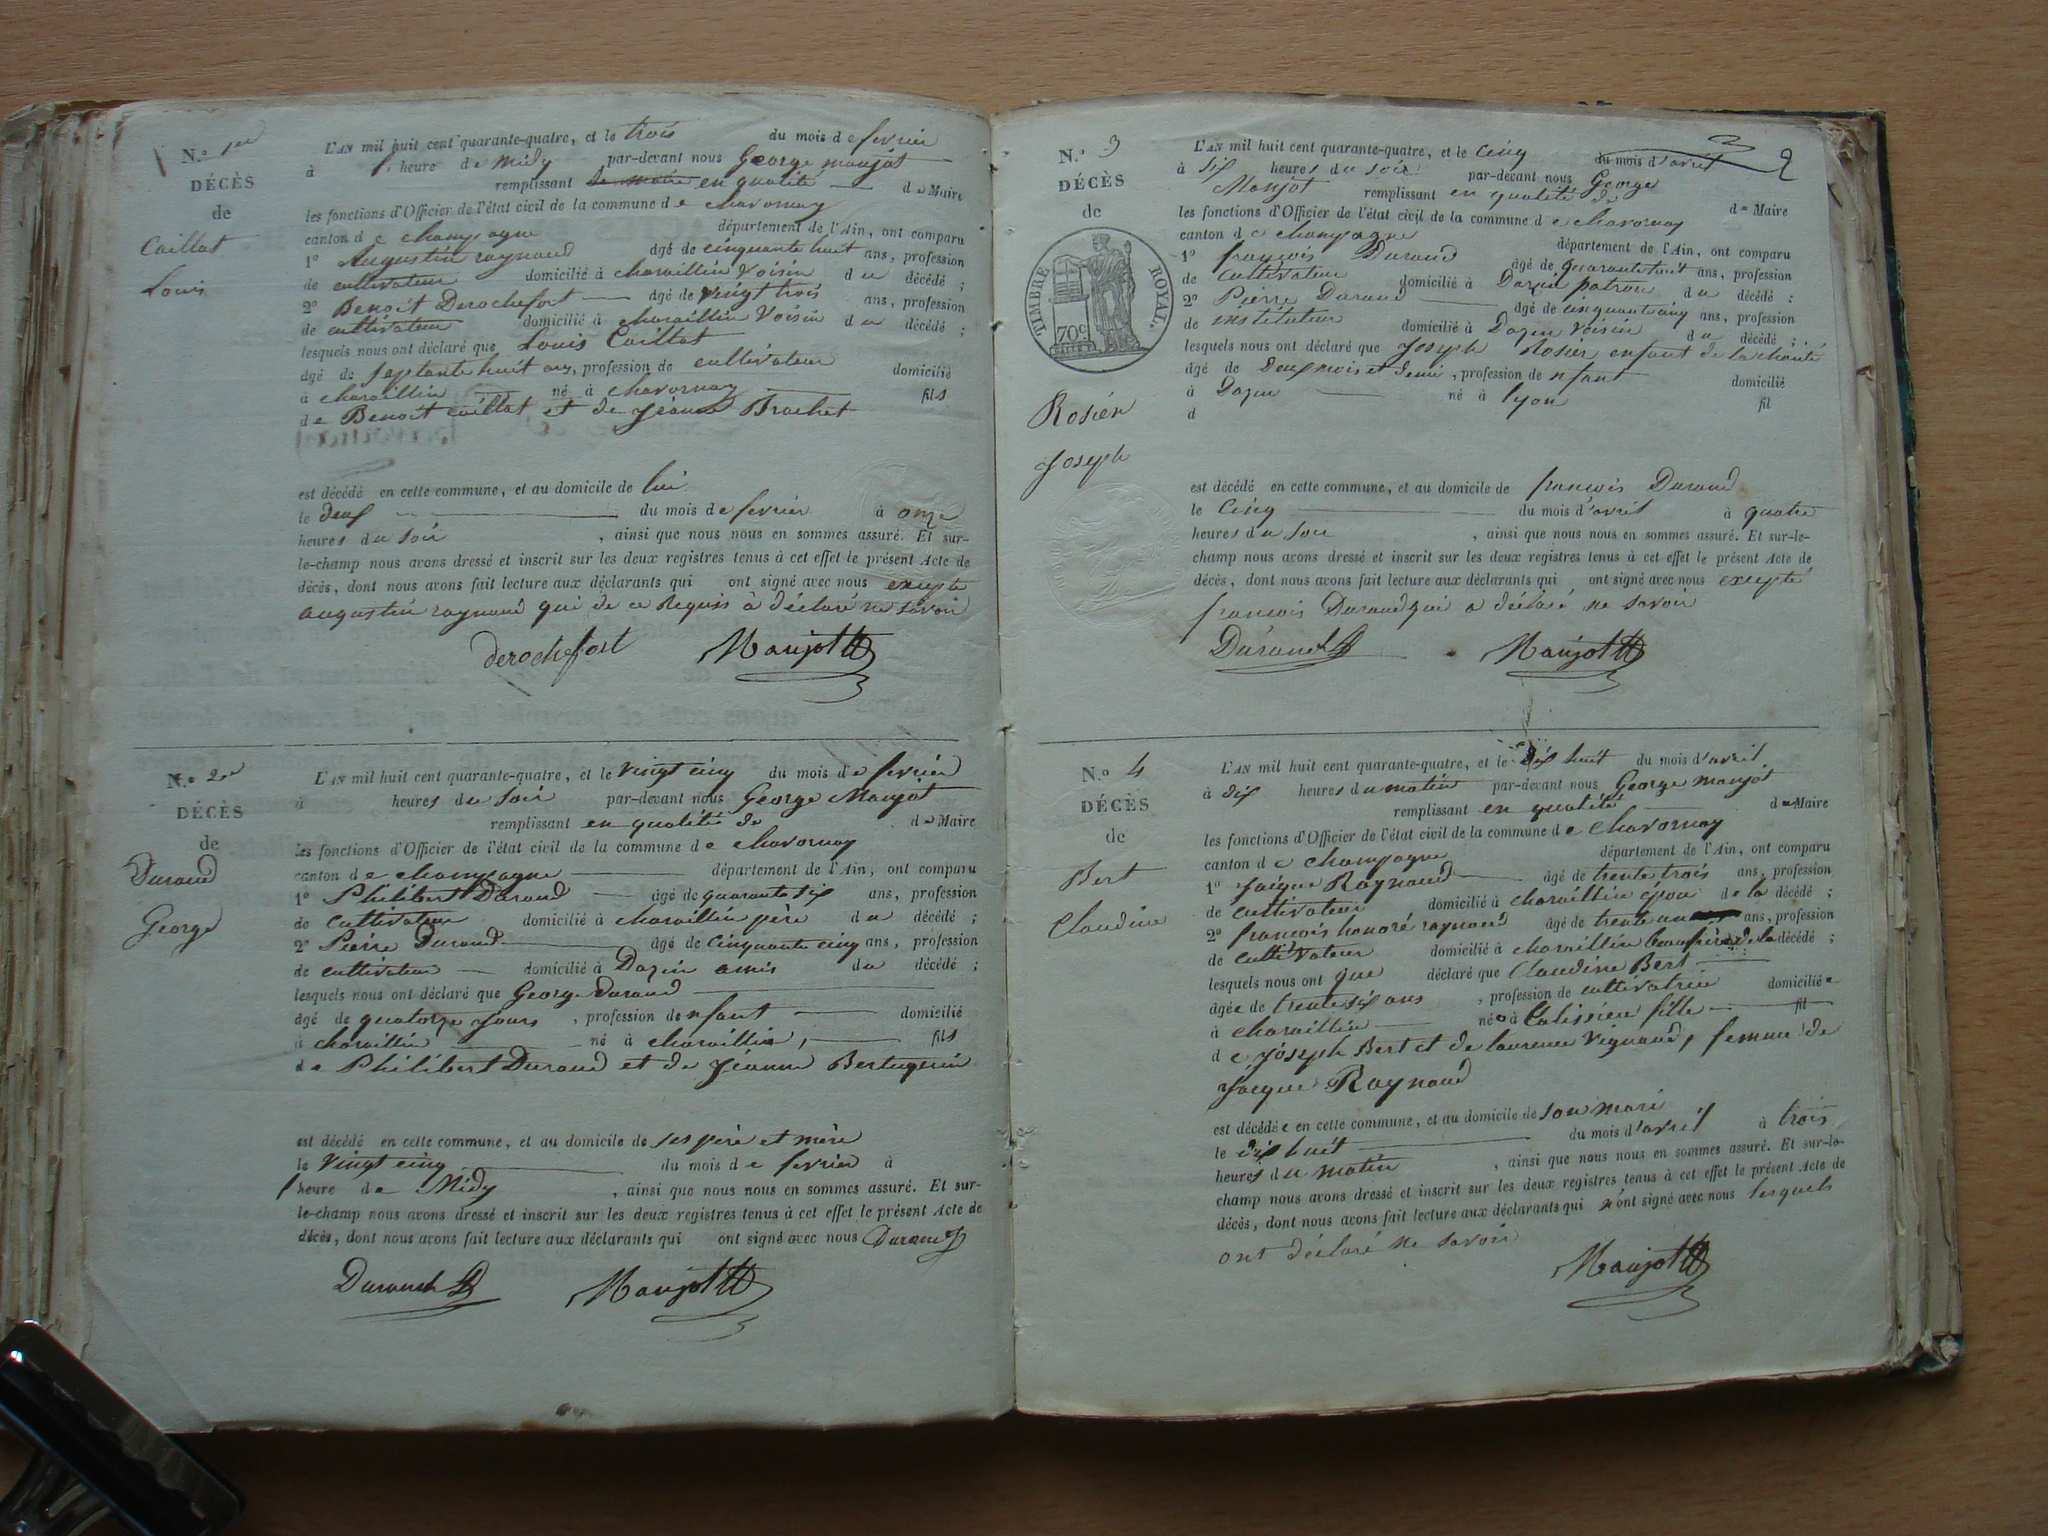 N.o 1er
DÉCÈS
de
Caillat
Louis
L'AN mil huit cent quarante-quatre, et le trois du mois de fevrier
à 1 heure de midy par-devant nous George manjot
remplissant en qualité de Maire
les fonctions d'Officier de l'état civil de la commune de chavornay
canton de champagne département de l'Ain, ont comparu
1o Augustin raynaud âgé de cinquante huit ans, profession
de cultivateur domicilié à charaillin Voisin du décédé ;
2o Benoit Derochefort âgé de vingt trois ans, profession
de cultivateur domicilié à charaillin Voisin du décédé ;
lesquels nous ont déclaré que Louis Caillat
âgé de septante huit ans, profession de cultivateur domicilié
à charaillin né à chavornay fils
de Benoit caillat et de jeanne Brachet
est décédé en cette commune, et au domicile de lui
le deux du mois de fevrier à onze
heures du soir, ainsi que nous nous en sommes assuré. Et sur-
le-champ nous avons dressé et inscrit sur les deux registres tenus à cet effet le présent Acte de
décès, dont nous avons fait lecture aux déclarants qui ont signé avec nous excepté
augustin raynaud qui de ce Requis à déclaré ne savoir
derochefort Manjot
N.o 2e
DÉCÈS
de
Duraud
George
L'AN mil huit cent quarante-quatre, et le vingt cinq du mois de fevrier
à heures du soir par-devant nous George Manjot
remplissant en qualité de de Maire
les fonctions d'Officier de l'état civil de la commune de chavornay
canton de champagne département de l'Ain, ont comparu
1o Philibert Duraud âgé de quarante six ans, profession
de cultivateur domicilié à charaillin père du décédé ;
2o Pierre Duraud âgé de cinquante cinq ans, profession
de cultivateur domicilié à Dazin amis du décédé ;
lesquels nous ont déclaré que George Duraud
âgé de quatorze jours, profession de nfant domicilié
à charaillin né à charaillin, fils
de Philibert Duraud et de jeanne
est décédé en cette commune, et au domicile de ses père et mère
le vingt cinq du mois de fevrier à
1 heure de Midy, ainsi que nous nous en sommes assuré. Et sur-
le-champ nous avons dressé et inscrit sur les deux registres tenus à cet effet le présent Acte de
décès, dont nous avons fait lecture aux déclarants qui ont signé avec nous Duraud
Duraud Manjot
3
2
N.o 3
DÉCÈS
de
TIMBRE ROYAL.
70c
Rosier
Joseph
L'AN mil huit cent quarante-quatre, et le cinq du mois d'avril
à six heures du soir par-devant nous George
Manjot remplissant en qualité de de Maire
les fonctions d'Officier de l'état civil de la commune de chavornay
canton de champagne département de l'Ain, ont comparu
1o françois Duraud âgé de quarante huit ans, profession
de cultivateur domicilié à Dazin patron du décédé ;
2o Pierre Duraud âgé de cinquante cinq ans, profession
de instituteur domicilié à Dazin Voisin du décédé ;
lesquels nous ont déclaré que Joseph Rosier enfant de la charité
âgé de Deux mois et demi, profession de nfant domicilié
à Dazin né à lyon fil
d
est décédé en cette commune, et au domicile de françois Duraud
le cinq du mois d'avril à quatre
heures du soir, ainsi que nous nous en sommes assuré. Et sur-le-
champ nous avons dressé et inscrit sur les deux registres tenus à cet effet le présent Acte de
décès, dont nous avons fait lecture aux déclarants qui ont signé avec nous excepté
françois Duraud qui a déclaré ne savoir
Duraud Manjot
N.o 4
DÉCÈS
de
Bert
Claudine
L'AN mil huit cent quarante-quatre, et le dix huit du mois d'avril
à dix heures du matin par-devant nous George manjot
remplissant en qualité de Maire
les fonctions d'Officier de l'état civil de la commune de chavornay
canton de champagne département de l'Ain, ont comparu
1o Jacque Raynaud âgé de trente trois ans, profession
de cultivateur domicilié à charaillin époux de la décédé ;
2o françois honoré raynaud âgé de trente un ans, profession
de cultivateur domicilié à charaillin beaufrère de la décédé ;
lesquels nous ont que déclaré que Claudine Bert
âgée de trente six ans, profession de cultivatrice domiciliée
à charaillin née à Talissieu fille fil
de joseph Bert et de laurence Vignaud, femme de
Jacque Raynaud
est décédée en cette commune, et au domicile de son mari
le dix huit du mois d'avril à trois
heures du matin, ainsi que nous nous en sommes assuré. Et sur-le-
champ nous avons dressé et inscrit sur les deux registres tenus à cet effet le présent Acte de
décès, dont nous avons fait lecture aux déclarants qui n'ont signé avec nous lesquels
ont déclaré ne savoir
Manjot